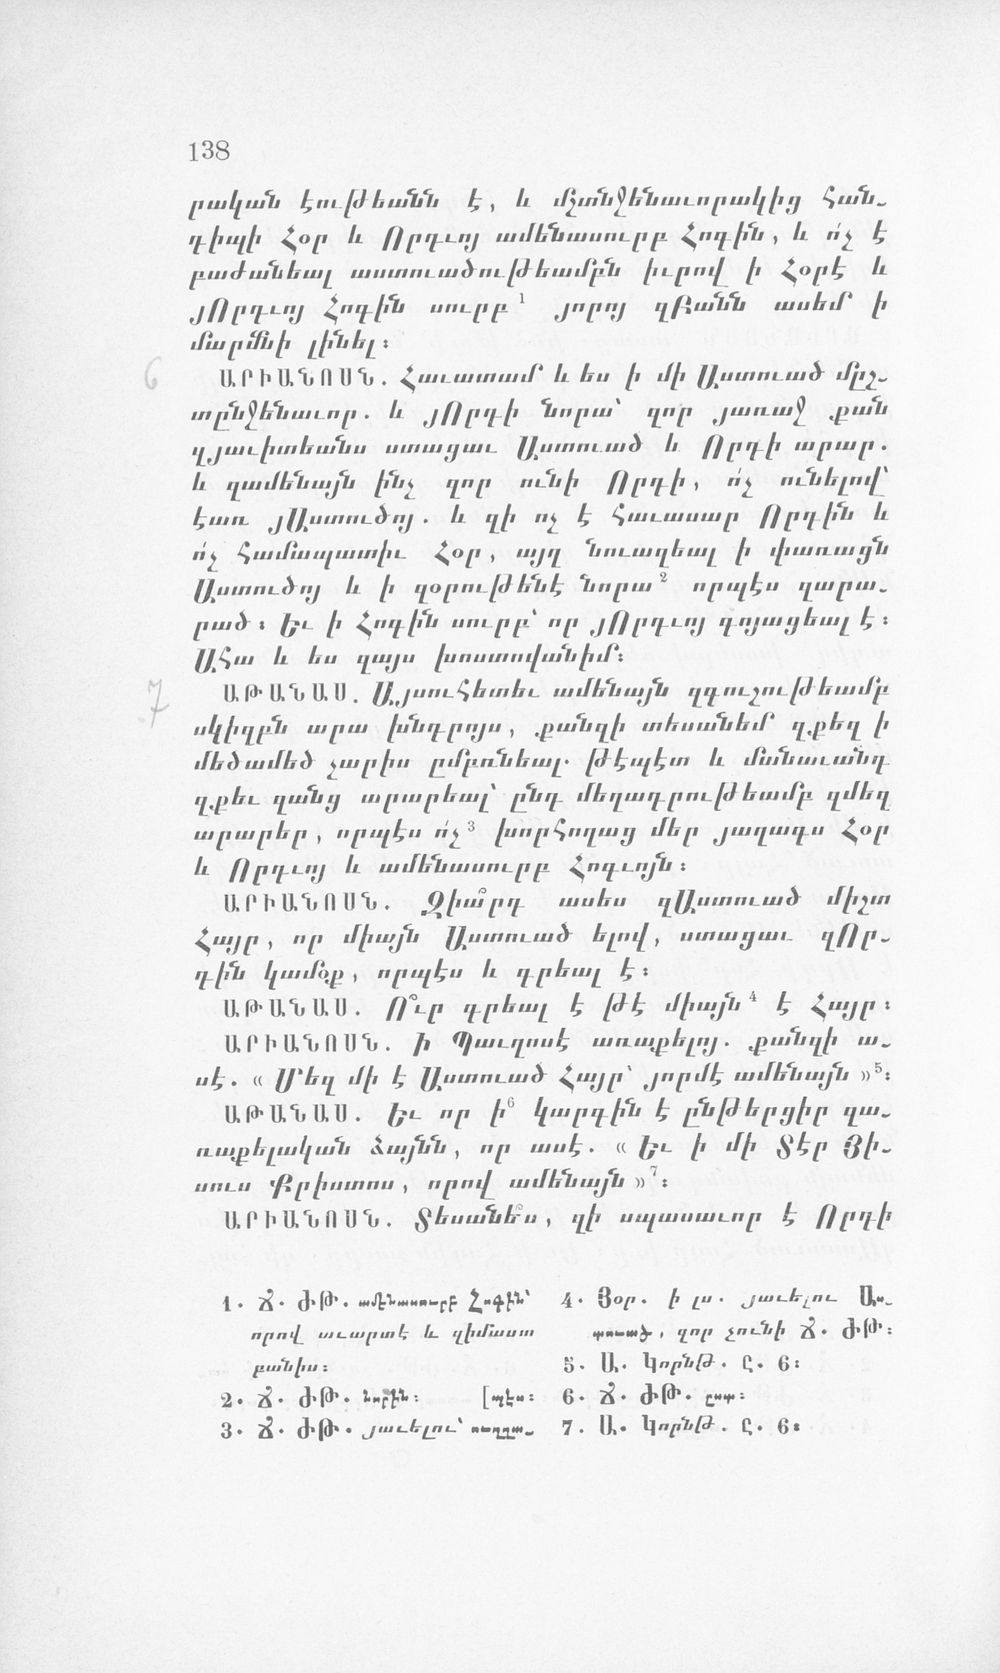 138
րական էութեանն է, և մշտնջենաւորակից հան-
դիպի Հօր և Որդւոյ ամենասուրբ Հոգին, և ո՛չ է
բաժանեալ աստուածութեամբն իւրով ի Հօրէ և
յՈրդւոյ Հոգին սուրբ¹ յորոյ զԲանն ասեմ ի
մարմնի լինել։
6
ԱՐԻԱՆՈՍՆ. Հաւատամ և ես ի մի Աստուած մըշ-
տընջենաւոր. և յՈրդի նորա՝ զոր յառաջ քան
զյաւիտեանս ստացաւ Աստուած և Որդի արար.
և զամենայն ինչ զոր ունի Որդի, ո՛չ ունելով՝
էառ յԱստուծոյ. և զի ոչ է հաւասար Որդին և
ո՛չ համապատիւ Հօր, այլ նուաղեալ ի փառացն
Աստուծոյ և ի զօրութենէ նորա² որպէս զարա-
րած։ Եւ ի Հոգին սուրբ՝ որ յՈրդւոյ գոյացեալ է։
Ահա և ես զայս խոստովանիմ։
7
ԱԹԱՆԱՍ. Այսուհետեւ ամենայն զգուշութեամբ
սկիզբն արա խնդրոյս, քանզի տեսանեմ զքեզ ի
մեծամեծ չարիս ըմբռնեալ. թէպէտ և մանաւանդ
զքեւ զանց արարեալ՝ ընդ մեղադրութեամբ զմեզ
արարեր, որպէս ո՛չ³ խորհողաց մեր յաղագս Հօր
և Որդւոյ և ամենասուրբ Հոգւոյն։
ԱՐԻԱՆՈՍՆ. Զիա՞րդ ասես զԱստուած միշտ
Հայր, որ միայն Աստուած ելով, ստացաւ զՈր-
դին կամօք, որպէս և գրեալ է։
ԱԹԱՆԱՍ. Ո՞ւր գրեալ է թէ միայն⁴ է Հայր։
ԱՐԻԱՆՈՍՆ. ի Պաւղոսէ առաքելոյ. քանզի ա-
սէ. « Մեզ մի է Աստուած Հայր՝ յորմէ ամենայն »⁵։
ԱԹԱՆԱՍ. Եւ որ ի⁶ կարգին է ընթերցիր զա-
ռաքելական ձայնն, որ ասէ. « Եւ ի մի Տէր Յի-
սուս Քրիստոս, որով ամենայն »⁷։
ԱՐԻԱՆՈՍՆ. Տեսանե՞ս, զի սպասաւոր է Որդի
1. Ճ. ԺԹ. ամենասուրբ Հոգին՝
որով աւարտէ և զիմաստ
բանիս։
2. Ճ. ԺԹ. նորին։ [պէս։
3. Ճ. ԺԹ. յաւելու՝ ուղղա-
4. Յօր. ի լս. յաւելու Աս-
տուած, զոր չունի Ճ. ԺԹ։
5. Ա. Կորնթ. Ը. 6։
6. Ճ. ԺԹ. ըստ։
7. Ա. Կորնթ. Ը. 6։